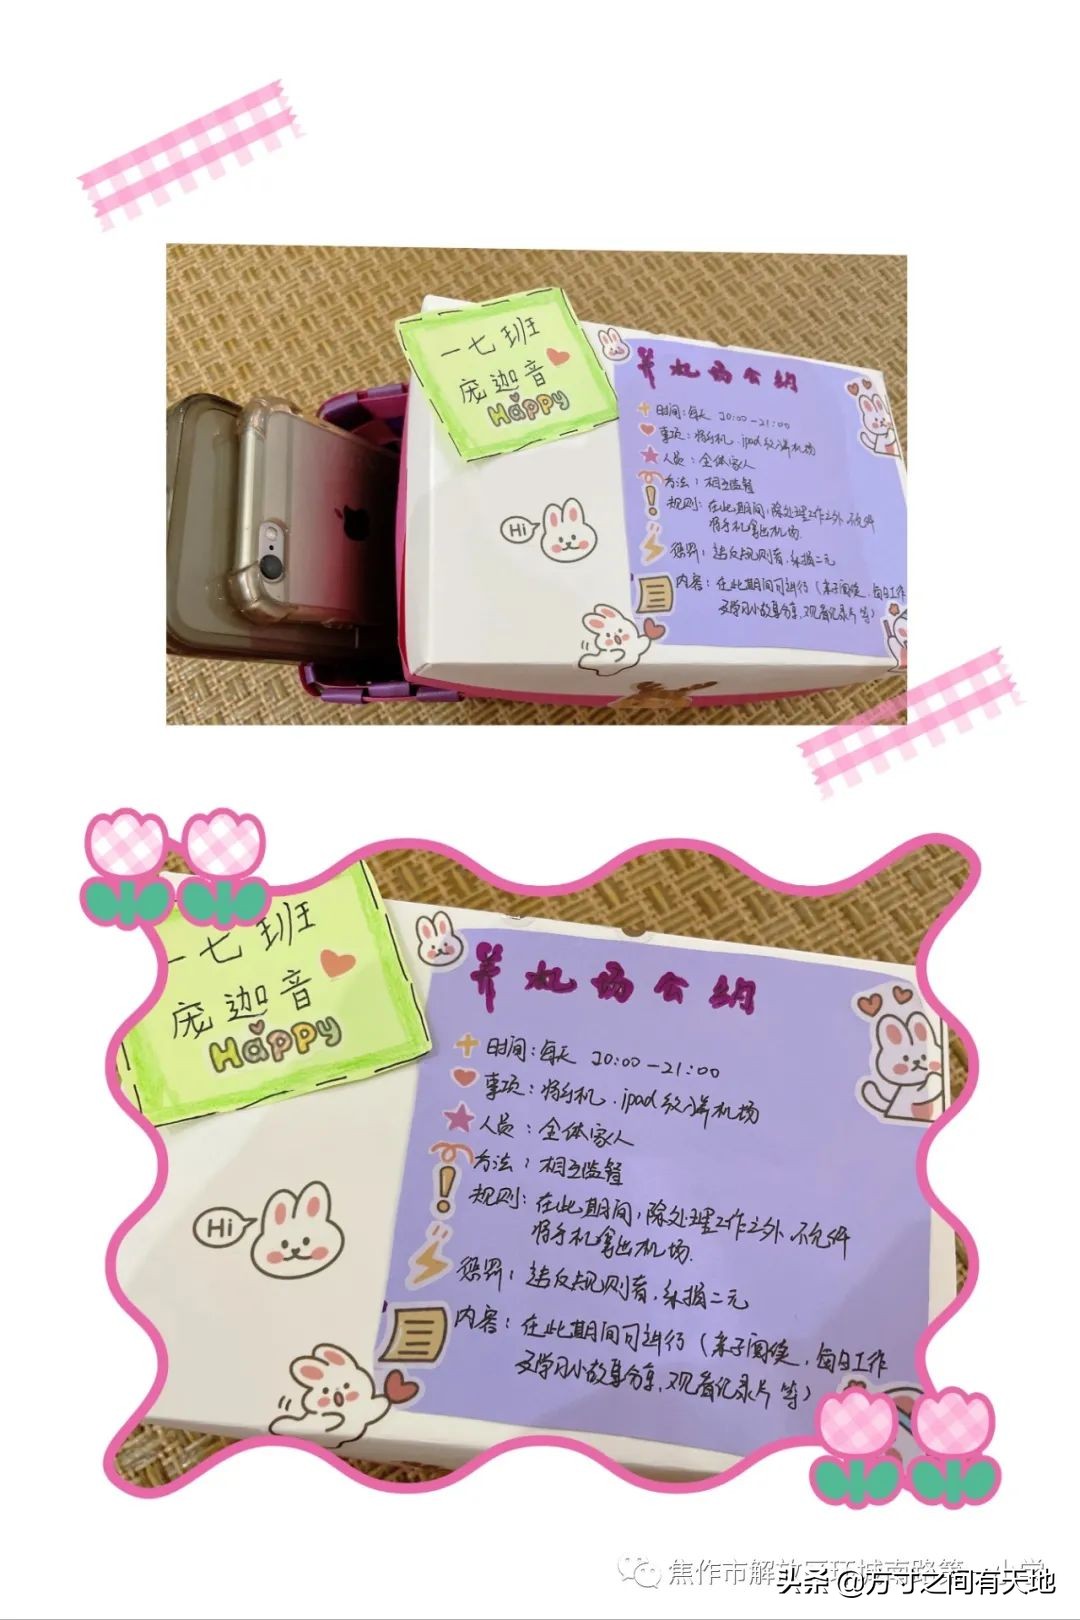 一七班
庞迦音
Happy
Hi
养机场公约
时间：每天 20:00-21:00
事项：将手机、ipad放入养机场
人员：全体家人
方法：相互监督
规则：在此期间，除处理工作之外不允许
将手机拿出机场.
惩罚：违反规则者，乐捐二元
内容：在此期间可进行（亲子阅读，每日工作
及学习小故事分享，观看纪录片等）
一七班
庞迦音
Happy
Hi
养机场公约
时间：每天 20:00-21:00
事项：将手机、ipad放入养机场
人员：全体家人
方法：相互监督
规则：在此期间，除处理工作之外不允许
将手机拿出机场.
惩罚：违反规则者，乐捐二元
内容：在此期间可进行（亲子阅读，每日工作
及学习小故事分享，观看纪录片等）
焦作市解放区环城南路第一小学
头条 @方寸之间有天地